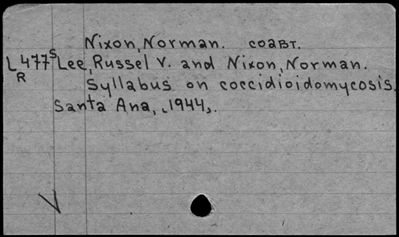 Nixon, Norman. соавт.
L477S Lee, Russel V. and Nixon, Norman.
R
Syllabus on coccidioidomycosis.
Santa Ana, [1944].
V